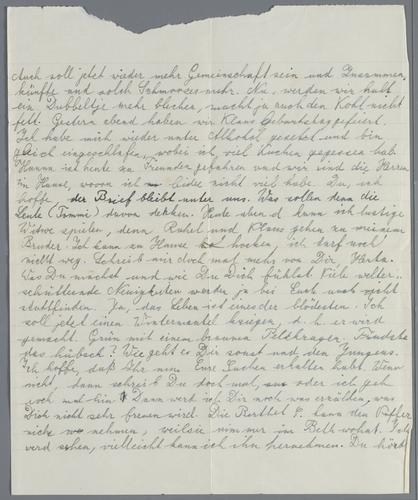 Auch soll jetzt wieder mehr Gemeinschaft sein und Zusammen,
künfte und solch Schmonzes mehr. Na, werden wir halt
ein Dubbeltje mehr blechen, macht ja auch den Kohl nicht
fett. Gestern abend haben wir Klaus Geburtstag gefeiert.
Ich habe mich wieder unter Alkohol gesetzt und bin
gleich eingeschlafen, wobei ich viel Kuchen gegessen hab.
Hanna ist heute zu Freunden gefahren und wir sind die Herren
im Hause, wovon ich leider nicht viel habe. Du, ich
hoffe, der Brief bleibt unter uns. Was sollen denn die
Leute (Trimmi) davon denken. Heute abend kann ich lustige
Witwe spielen, denn Rahel und Klaus gehen zu meinem
Bruder. Ich kann zu Hause hocken, ich darf noch
nicht weg. Schreib mir doch mal mehr von Dir, Herta.
Was Du machst und wie Du Dich fühlst. Viele welter,,
schütternde Neuigkeiten werden ja bei Euch auch nicht
stattfinden. Ja, das Leben ist eines der blödesten. Ich
soll jetzt einen Wintermantel kriegen, d. h. er wird
gemacht. Grün mit einem braunen Pelzkragen. Findste
das hübsch? Wie geht es Dir sonst und den Jungens.
Ich hoffe, daß Ihr nun Eure Sachen erhalten habt. Wenn
nicht, dann schreib Du doch mal, oder ich geh
noch mal hin. Dann werd ich Dir noch was erzählen, was
Dich nicht sehr freuen wird. Die Berthel kann den Koffer
nicht nehmen, weil sie nimmer im Beth wohnt. Ich
werd sehen, vielleicht kann ich ihn hernehmen. Du hörst